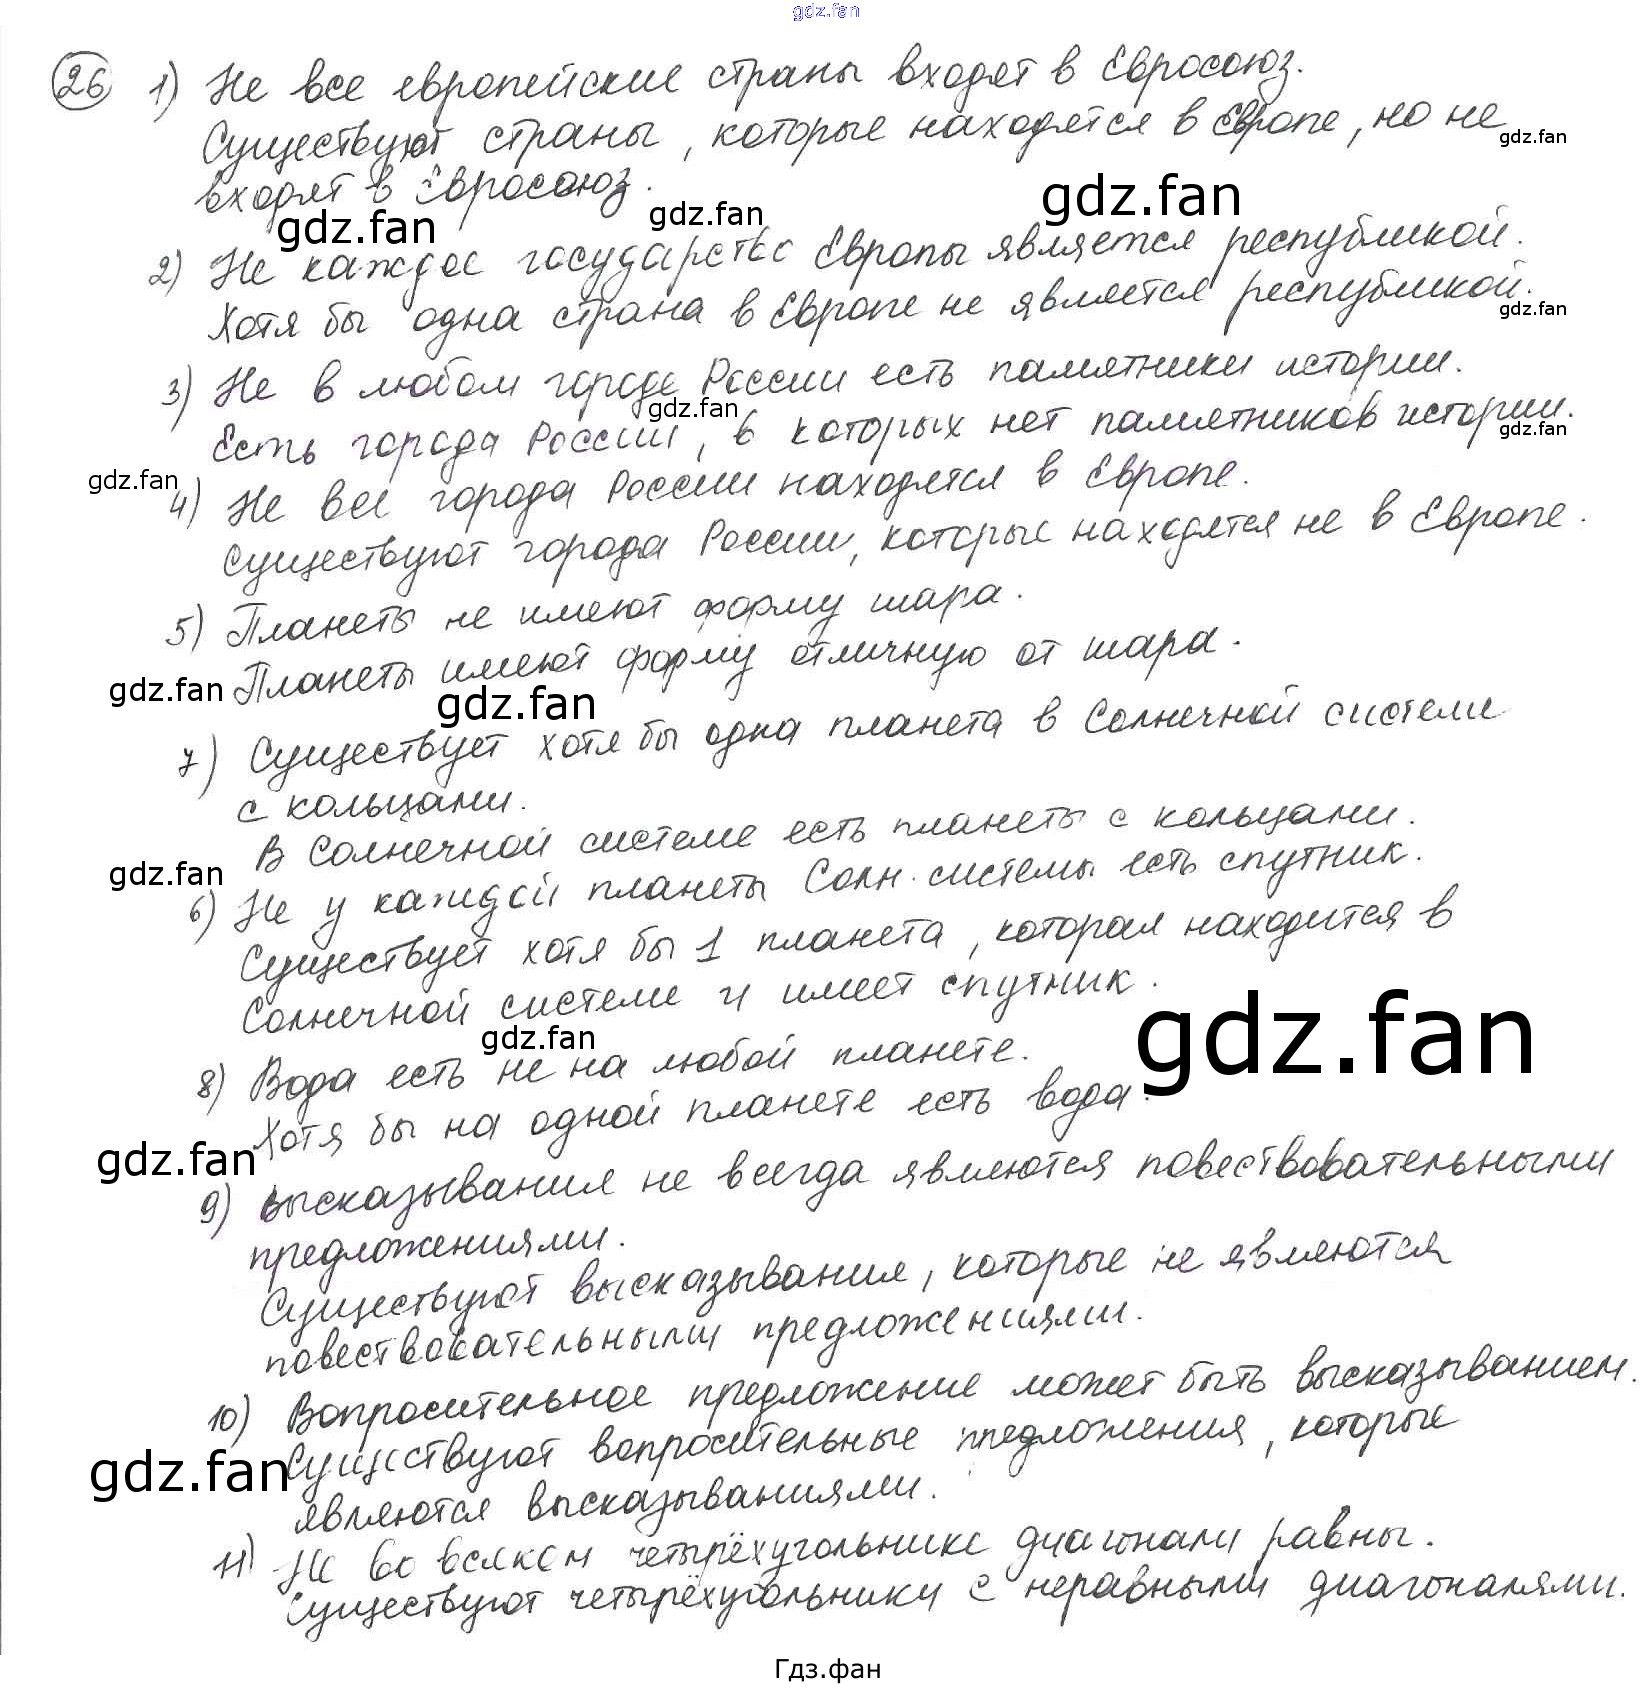 gdz.fan
26 1) Не все европейские страны входят в Евросоюз.
Существуют страны, которые находятся в Европе, но не
gdz.fan
входят в Евросоюз.
gdz.fan gdz.fan gdz.fan
2) Не каждое государство Европы является республикой.
Хотя бы одна страна в Европе не является республикой.
gdz.fan
3) Не в любом городе России есть памятники истории.
gdz.fan
Есть города России, в которых нет памятников истории.
gdz.fan
gdz.fan
4) Не все города России находятся в Европе.
Существуют города России, которые находятся не в Европе.
5) Планеты не имеют форму шара.
Планеты имеют форму отличную от шара.
gdz.fan gdz.fan
7) Существует хотя бы одна планета в Солнечной системе
с кольцами.
В Солнечной системе есть планеты с кольцами.
gdz.fan
6) Не у каждой планеты Солн. системы есть спутник.
Существует хотя бы 1 планета, которая находится в
Солнечной системе и имеет спутник.
gdz.fan gdz.fan
8) Вода есть не на любой планете.
Хотя бы на одной планете есть вода.
gdz.fan
9) высказывания не всегда являются повествовательными
предложениями.
Существуют высказывания, которые не являются
повествовательными предложениями.
10) Вопросительное предложение может быть высказыванием.
Существуют вопросительные предложения, которые
gdz.fan
являются высказываниями.
11) Не во всяком четырёхугольнике диагонали равны.
Существуют четырёхугольники с неравными диагоналями.
Гдз.фан